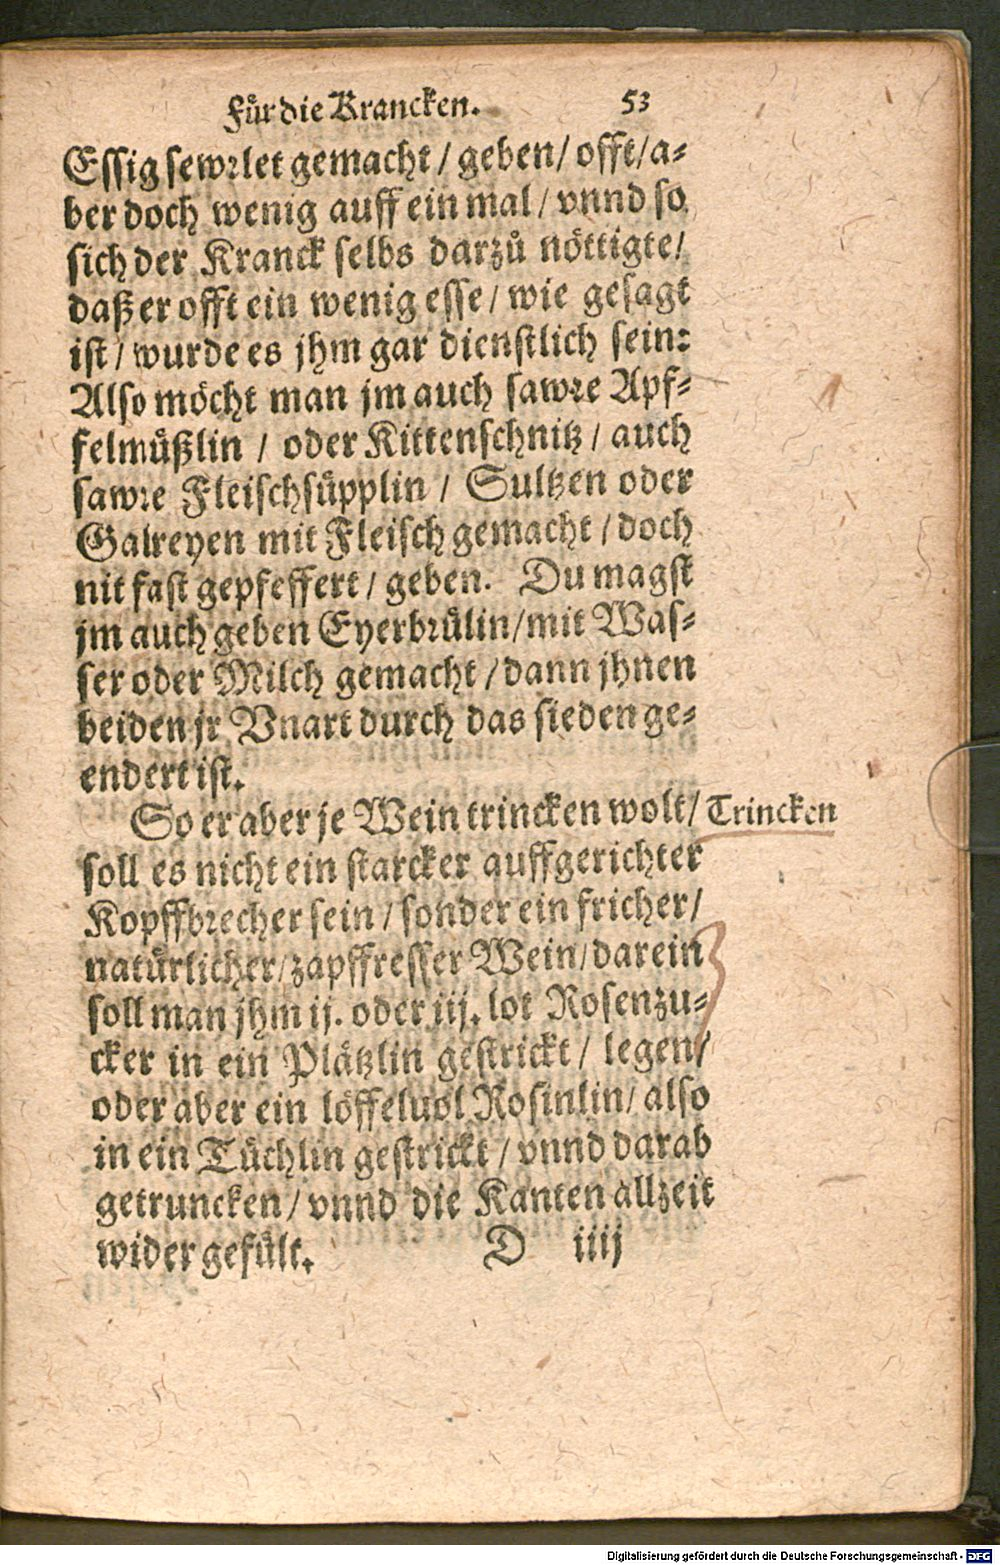 Für die Krancken. 53
Essig sewrlet gemacht / geben / offt / a-
ber doch wenig auff ein mal / vnnd so
sich der Kranck selbs darzů nöttigte /
daß er offt ein wenig esse / wie gesagt
ist / wurde es jhm gar dienstlich sein:
Also möcht man jm auch sawre Apf-
felmůßlin / oder Kittenschnitz / auch
sawre Fleischsüpplin / Sultzen oder
Galreyen mit Fleisch gemacht / doch
nit fast gepfeffert / geben. Du magst
jm auch geben Eyerbrůlin / mit Was-
ser oder Milch gemacht / dann jhnen
beiden jr Vnart durch das sieden ge-
endert ist.
So er aber je Wein trincken wolt / Trincken
soll es nicht ein starcker auffgerichter
Kopffbrecher sein / sonder ein fricher /
natürlicher / zapffresser Wein / darein
soll man jhm ij. oder iij. lot Rosenzu-
cker in ein Plätzlin gestrickt / legen /
oder aber ein löffeluol Rosinlin / also
in ein Tůchlin gestrickt / vnnd darab
getruncken / vnnd die Kanten allzeit
wider gefült. D iiij
Digitalisierung gefördert durch die Deutsche Forschungsgemeinschaft - DFG